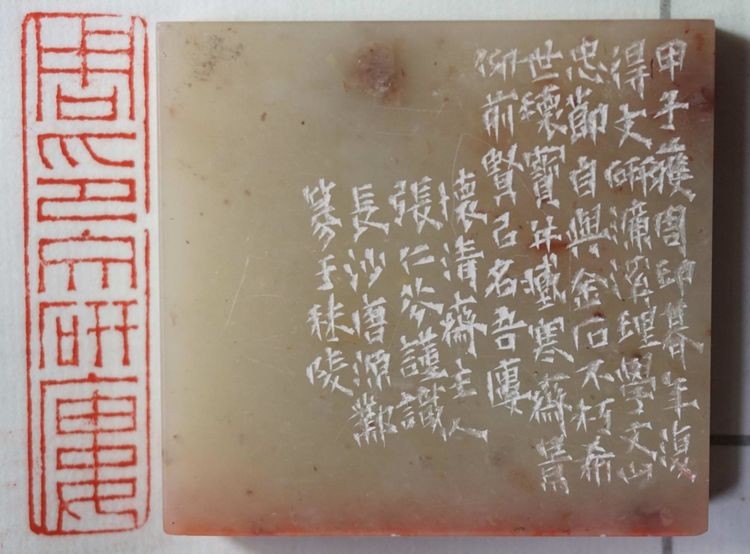 周印文研廔
甲子獲周印暮年復
得文研濂洛理學文山
忠節自與金石不朽希
世瓌寶寒齋景
仰前賢己名吾廔
懷清齋主人
張仁芬謹識
長沙唐源鄴
篆于秣陵